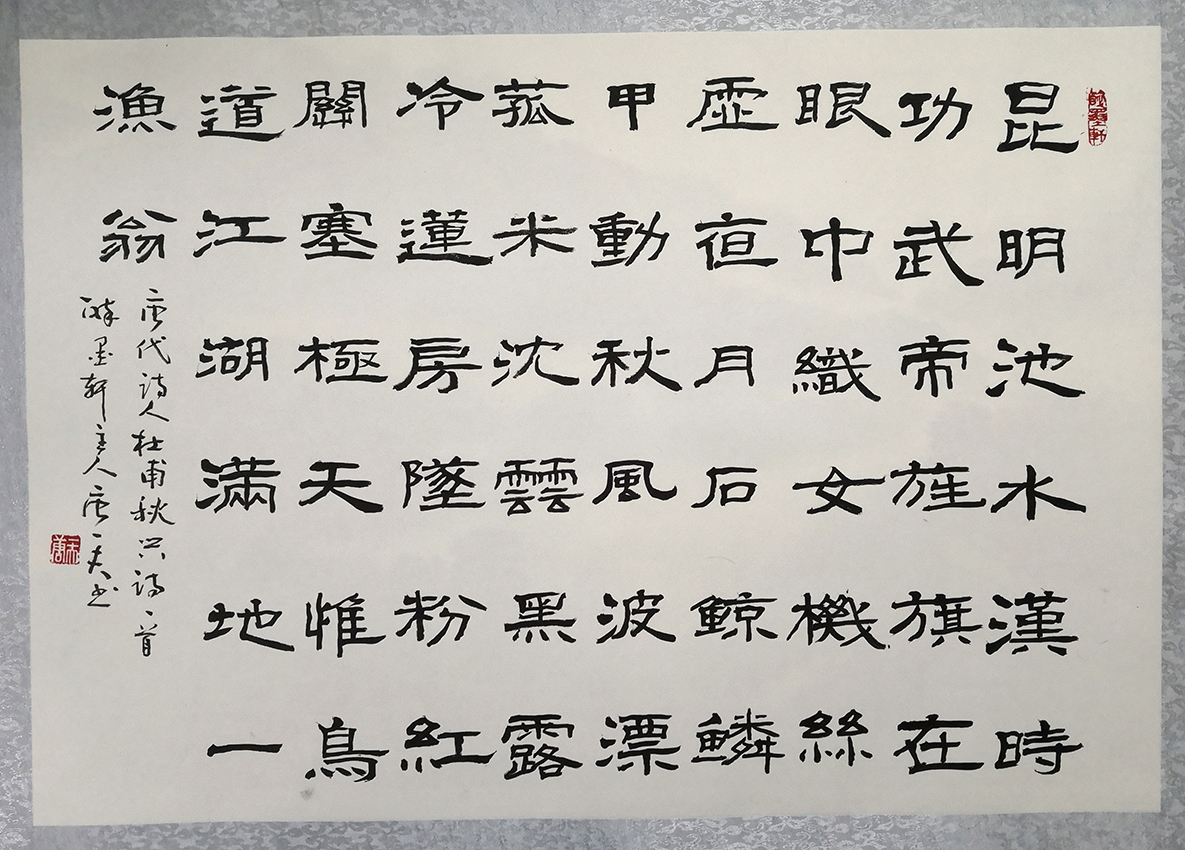 昆明池水漢時
功武帝旌旗在
眼中織女機絲
虛夜月石鯨鱗
甲動秋風波漂
菰米沈雲黑露
冷蓮房墜粉紅
關塞極天惟鳥
道江湖滿地一
漁翁
唐代诗人杜甫秋兴诗一首
墨轩主人唐一夫书